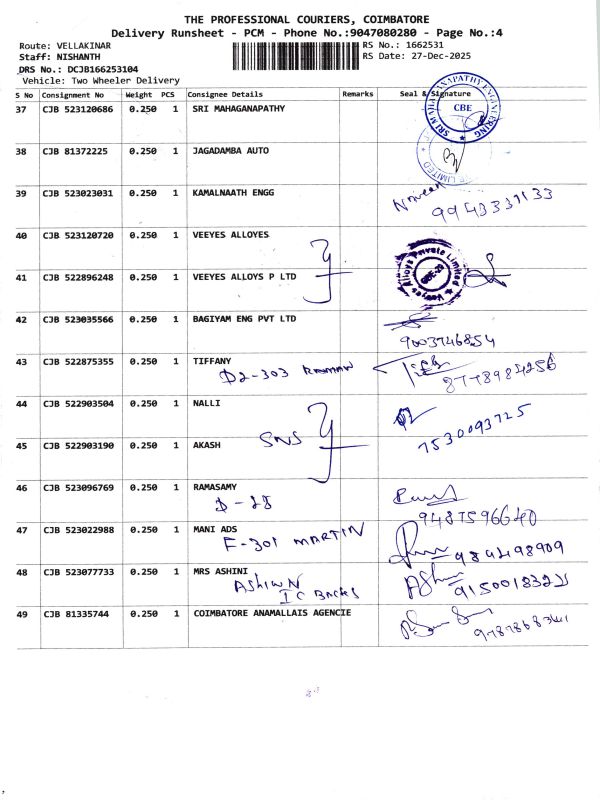 THE PROFESSIONAL COURIERS, COIMBATORE
Delivery Runsheet - PCM - Phone No.:9047080280 - Page No.:4
Route: VELLAKINAR RS No.: 1662531
Staff: NISHANTH RS Date: 27-Dec-2025
DRS No.: DCJB166253104
Vehicle: Two Wheeler Delivery
S No Consignment No Weight PCS Consignee Details Remarks Seal & Signature
37 CJB 523120686 0.250 1 SRI MAHAGANAPATHY
SRI MAHAGANAPATHY ENGINEERING
CBE
38 CJB 81372225 0.250 1 JAGADAMBA AUTO
LIMITED
39 CJB 523023031 0.250 1 KAMALNAATH ENGG
Naveen
9943331133
40 CJB 523120720 0.250 1 VEEYES ALLOYES
Veeyes Alloys Private Limited
41 CJB 522896248 0.250 1 VEEYES ALLOYS P LTD
42 CJB 523035566 0.250 1 BAGIYAM ENG PVT LTD
9003746854
43 CJB 522875355 0.250 1 TIFFANY
D2-303 8778984256
44 CJB 522903504 0.250 1 NALLI
7530093725
45 CJB 522903190 0.250 1 AKASH
SNS
46 CJB 523096769 0.250 1 RAMASAMY
9487596640
47 CJB 523022988 0.250 1 MANI ADS
F-301 MARTIN
48 CJB 523077733 0.250 1 MRS ASHINI
ASHWN
49 CJB 81335744 0.250 1 COIMBATORE ANAMALLAIS AGENCIE